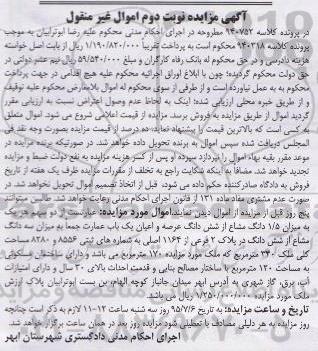 آگهی مزایده نوبت دوم اموال غیر منقول
در پرونده کلاسه ۹۴۰۷۵۲ مطروحه در اجرای احکام مدنی محکوم علیه رضا ابوترابیان به موجب
پرونده کلاسه ۹۴۰۳۱۸ محکوم است به پرداخت تقریباً ۱/۱۹۰/۸۲۰/۰۰۰ ریال از بابت اصل خواسته
هزینه دادرسی و در حق محکوم له بانک رفاه کارگران و مبلغ ۵۹/۵۴۰/۰۰۰ ریال نیم عشر دولتی در
حق دولت محکوم گردیده؛ چون با ابلاغ اوراق اجرائیه محکوم علیه هیچ اقدامی در جهت پرداخت
محکوم به به عمل نیاورده است و از طرفی از سوی محکوم له اموال بلامعارض محکوم علیه توقیف
و از طریق خبره محلی ارزیابی شده؛ اینک به لحاظ عدم وصول اعتراض نسبت به ارزیابی مقرر
گردید اموال از طریق مزایده به فروش برسد. مزایده از قیمت اعلامی شروع می شود. اموال متعلق
به کسی است که بالاترین قیمت را پیشنهاد نماید، ده درصد از قیمت مزایده بصورت وجه نقد فی
المجلس دریافت شده سپس اموال به برنده تحویل داده خواهد شد. در صورتیکه برنده مزایده در
موعد مقرر بقیه بهاء اموال را نپردازد سپرده و پس از کسر هزینه مزایده به نفع دولت ضبط و مزایده
تجدید خواهد شد. مضافاً به اینکه شکایت راجع به تخلف از مقررات مزایده ظرف یک هفته از تاریخ
فروش به دادگاه صادرکننده حکم داده می شود، قبل از اتخاذ تصمیم اموال تحویل نخواهد شد. در
صورت عدم مشتری مفاد ماده ۱۳۱ از قانون اجرای احکام مدنی رعایت خواهد شد. طالبین میتوانند
پنج روز قبل از مزایده از اموال دیدن نمایند. اموال مورد مزایده: عبارتست از دو سهم هر یک
به میزان ۱/۵ دانگ مشاع از شش دانگ عرصه و اعیان یک باب عمارت جمعاً به میزان سه دانگ
مشاع از شش دانگ در پلاک ۲ فرعی از ۱۱۶۴ اصلی به شماره های ثبتی ۸۵۵۶ و ۸۲۸۰ مساحت
کلی ملک ۳۴۰ مترمربع که ملک مورد مزایده ۱۲۰ مترمربع می باشد و دارای ساختمان مسکونی
به مساحت ۱۲۰ مترمربع با ساختار مصالح بنایی و قدمت احداث بالای ۳۰ سال و دارای امتیازات
آب، برق، گاز شهری به آدرس ابهر میدان جانباز کوچه الهام، بن بست ابوترابیان پلاک ارزش
ملک مورد مزایده ۱/۲۵۰/۰۰۰/۰۰۰ ریال می باشد.
تاریخ و ساعت مزایده: به تاریخ ۹۵/۷/۶ روز سه شنبه ساعت ۱۲-۱۱ لازم به ذکر است چنانچه
روز مزایده به هر دلیلی مصادف با تعطیلی شود مزایده روز بعد در همان ساعت برگزار خواهد شد.
اجرای احکام مدنی دادگستری شهرستان ابهر